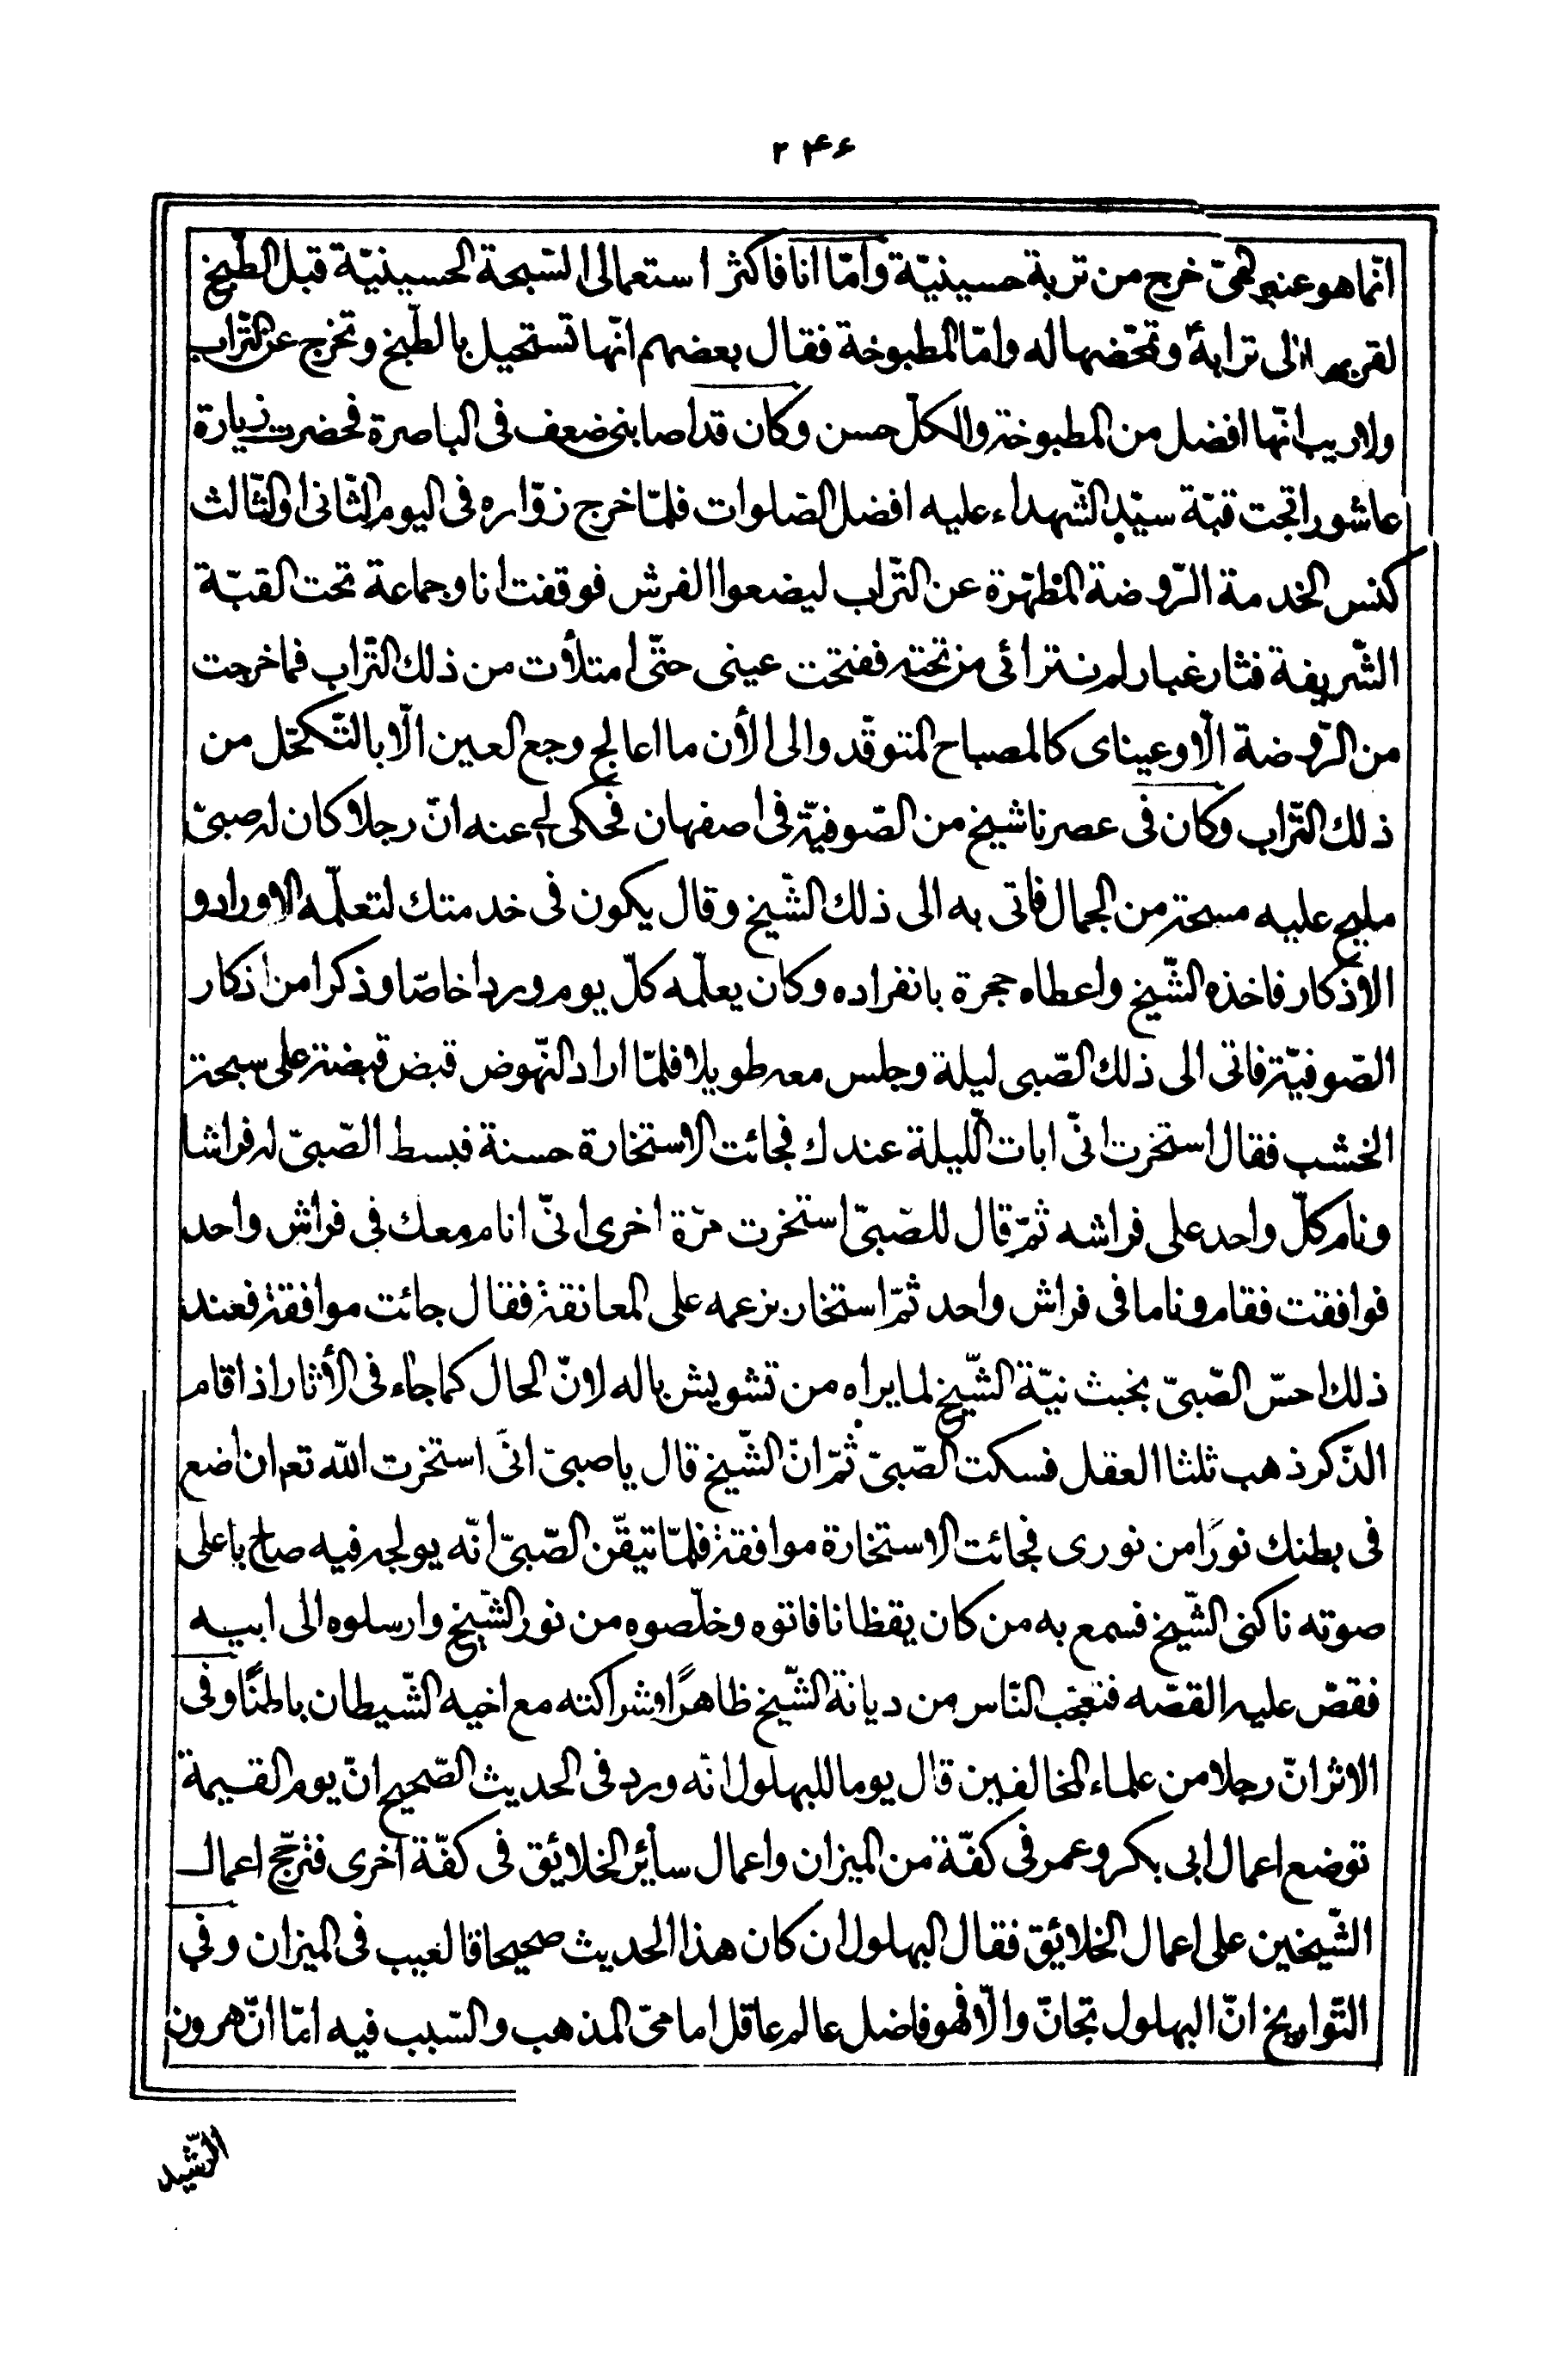 ۲۴۶
انّما هو عنبر لهىّ خرج من تربة حسينيّة وامّا انا فاكثر استعمالى السّبحة الحسينيّة قبل الطّبخ
لقربها الى ترابه وتمحّضها له وامّا المطبوخة فقال بعضهم انّها تستحيل بالطّبخ وتخرج عن التّراب
ولا ريب انّها افضل من المطبوخة والكلّ حسن وكان قد اصابنى ضعف فى الباصرة فحضرت زيارة
عاشورا تحت قبّة سيّد الشّهداء عليه افضل الصّلوات فلمّا خرج زوّاره فى اليوم الثّانى او الثّالث
كنس الخدمة الرّوضة المطهّرة عن التّراب ليضعوا الفرش فوقفت انا وجماعة تحت القبّة
الشّريفة فثار غبار لم نترائى من تحته ففتحت عينى حتّى امتلأت من ذلك التّراب فما خرجت
من الرّوضة الّا وعيناى كالمصباح المتوقّد والى الأن ما اعالج وجع العين الّا بالتّكحّل من
ذلك التّراب وكان فى عصرنا شيخ من الصّوفيّة فى اصفهان فحكى لى عنه انّ رجلا كان له صبىّ
مليح عليه مسحة من الجمال فاتى به الى ذلك الشّيخ وقال يكون فى خدمتك لتعلّمه الاوراد و
الاذكار فاخذه الشّيخ واعطاه حجرة بانفراده وكان يعلّمه كلّ يوم وردا خاصّا وذكرا من اذكار
الصّوفيّة فاتى الى ذلك الصّبى ليلة وجلس معه طويلا فلمّا اراد النّهوض قبض قبضة على سبحة
الخشب فقال استخرت انّى ابات اللّيلة عندك فجائت الاستخارة حسنة فبسط الصّبىّ له فراشا
ونام كلّ واحد على فراشه ثمّ قال للصّبىّ استخرت مرّة اخرى انّى انام معك فى فراش واحد
فوافقت فقام وناما فى فراش واحد ثمّ استخار بزعمه على المعانقة فقال جائت موافقة فعند
ذلك احسّ الصّبىّ بخبث نيّة الشّيخ لما يراه من تشويش باله لانّ الحال كما جاء فى الأثار اذا قام
الذّكر ذهب ثلثا العقل فسكت الصّبىّ ثمّ انّ الشّيخ قال يا صبىّ انّى استخرت اللّه تعم ان اضع
فى بطنك نورًا من نورى فجائت الاستخارة موافقة فلمّا تيقّن الصّبىّ انّه يولجه فيه صاح باعلى
صوته ناكنى الشّيخ فسمع به من كان يقظانا فاتوه وخلّصوه من نور الشّيخ وارسلوه الى ابيه
فقصّ عليه القصّه فتعجّب النّاس من ديانة الشّيخ ظاهرًا وشراكته مع اخيه الشّيطان باطنًا وفى
الاثر انّ رجلا من علماء المخالفين قال يوما للبهلول انّه ورد فى الحديث الصّحيح انّ يوم القيمة
توضع اعمال ابى بكر وعمر فى كفّة من الميزان واعمال سائر الخلائق فى كفّة اخرى فترجّح اعمال
الشّيخين على اعمال الخلائق فقال البهلول ان كان هذا الحديث صحيحا فالعيب فى الميزان وفي
التّواريخ انّ البهلول تجانّ والّا فهو فاضل عالم عاقل امامىّ المذهب والسّبب فيه امّا انّ هرون
الرّشيد